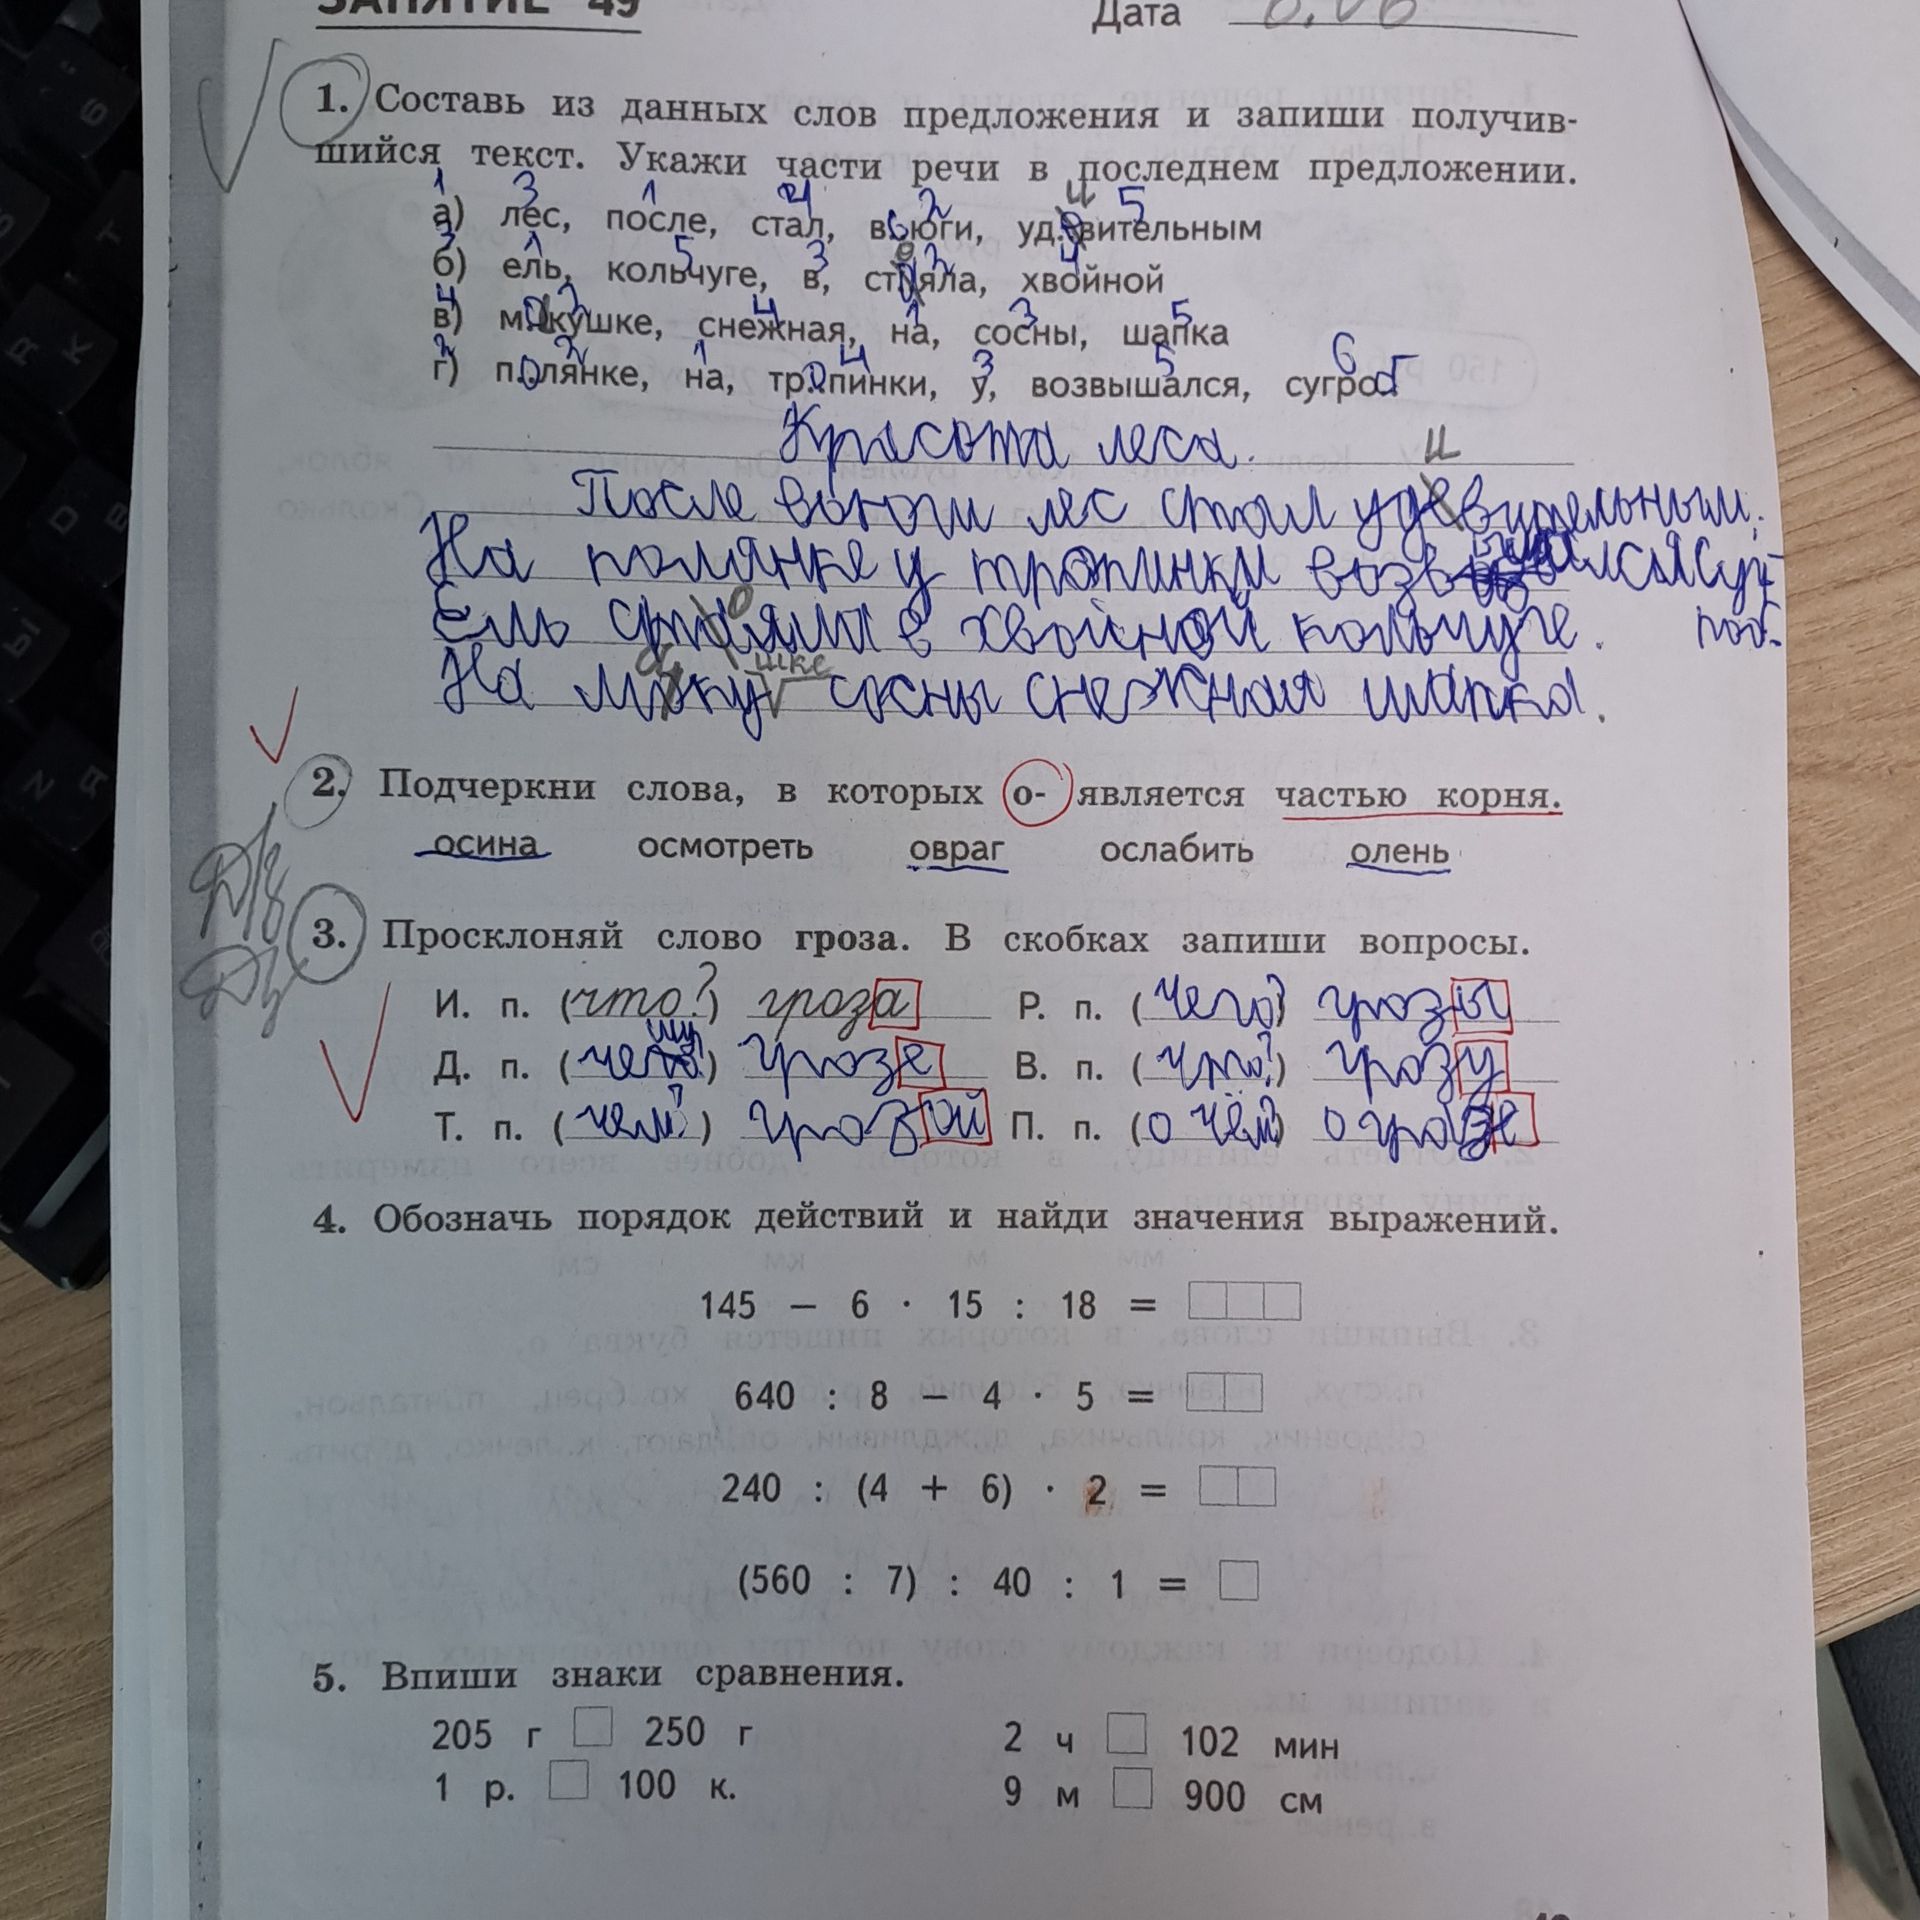 ЗАНЯТИЕ 49
Дата
1. Составь из данных слов предложения и запиши получив-
шийся текст. Укажи части речи в последнем предложении.
1 3 1 4 2 и 5
а) лес, после, стал, вьюги, уд.вительным
3 1 5 3 о 2 4
б) ель, кольчуге, в, стояла, хвойной
4 2 4 1 3 5
в) макушке, снежная, на, сосны, шапка
2 2 1 4 3 5 6
г) полянке, на, тропинки, у, возвышался, сугроб
Красота леса.
и
После вьюги лес стал удевительным.
На полянке у тропинки возвышался суг-
роб.
о
Ель стояла в хвойной кольчуге.
а шке
На маку сосны снежная шапка.
2. Подчеркни слова, в которых о- является частью корня.
осина осмотреть овраг ослабить олень
3. Просклоняй слово гроза. В скобках запиши вопросы.
И. п. (что?) гроза Р. п. (чего?) грозы
Д. п. (чему?) грозе В. п. (что?) грозу
Т. п. (чем?) грозой П. п. (о чём?) о грозе
4. Обозначь порядок действий и найди значения выражений.
145 − 6 · 15 : 18 =
640 : 8 − 4 · 5 =
240 : (4 + 6) · 2 =
(560 : 7) : 40 : 1 =
5. Впиши знаки сравнения.
205 г 250 г 2 ч 102 мин
1 р. 100 к. 9 м 900 см